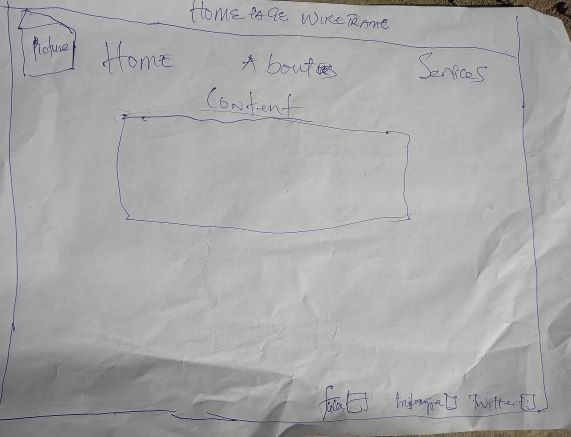 HOME PAGE WIREFRAME
Picture
Home About us Services
Content
Twitter